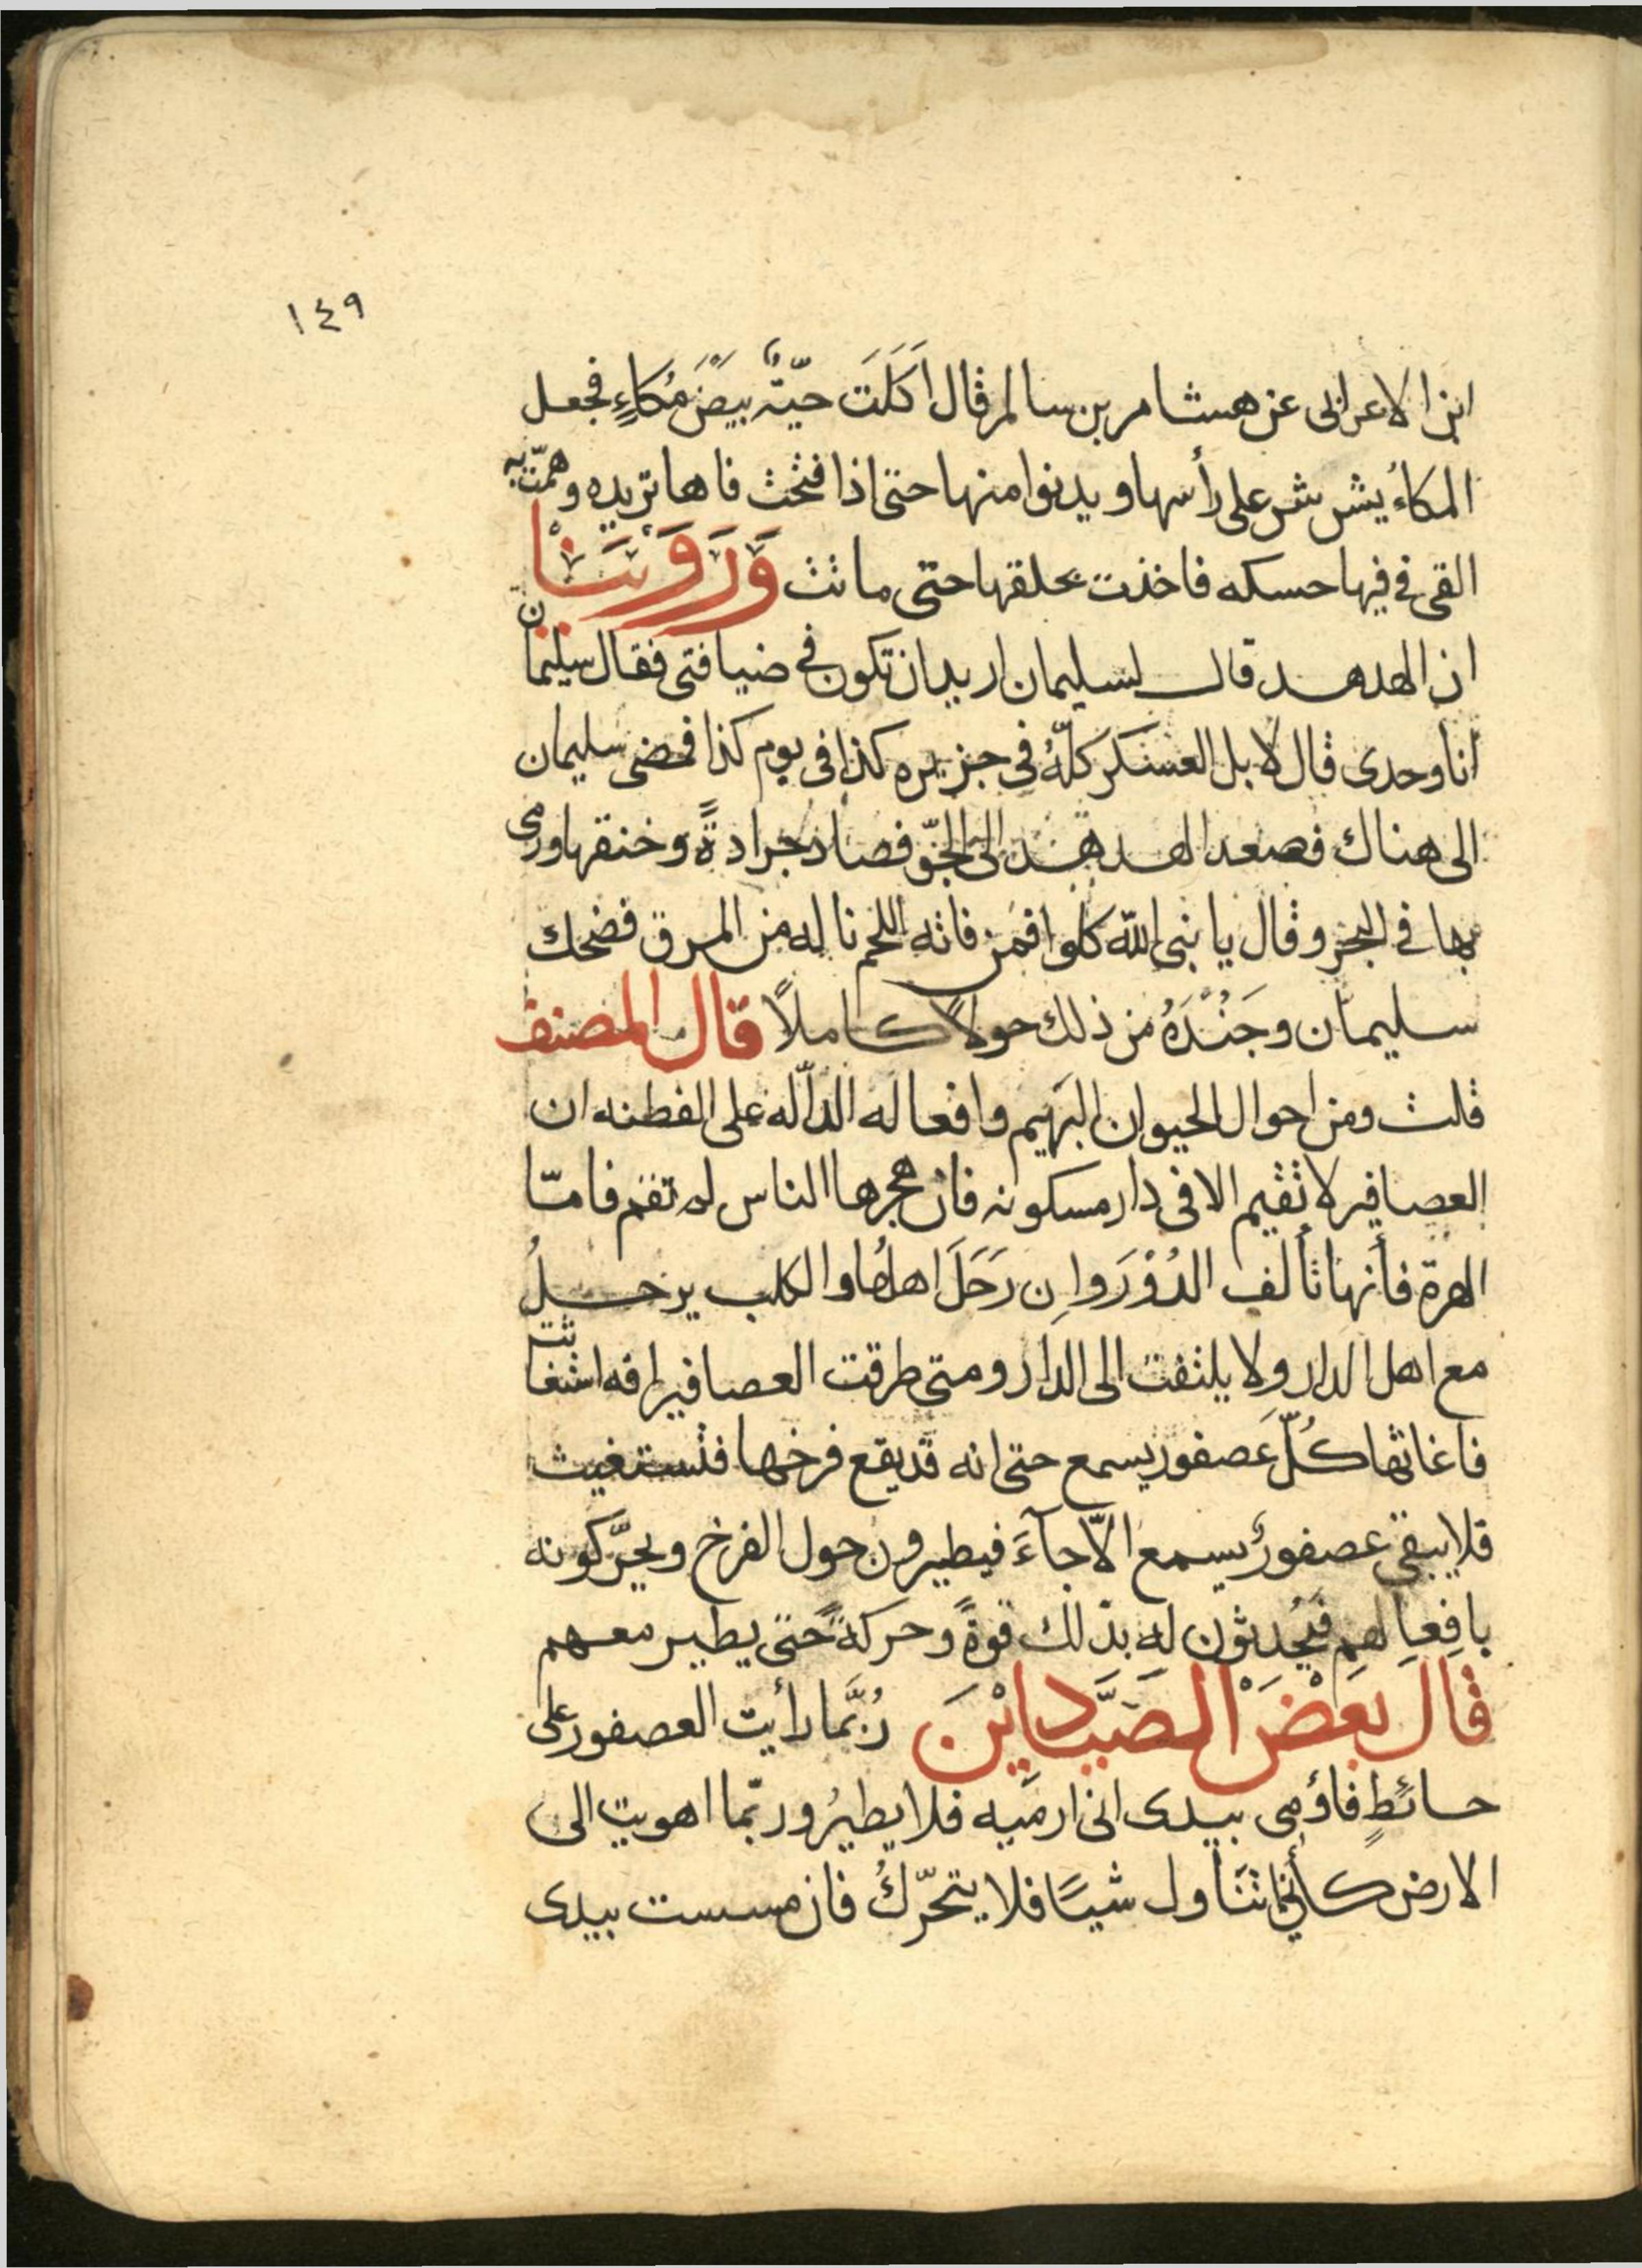 ١٤٩
ابن الاعرابى عن هشام بن سالم قال اَكَلَت حيّةٌ بيضَ مُكاءٍ فجعل
المكاءُ يشرشر على رأسها ويدنوا منها حتى اذا فتحت فاها تريده وهمّت به
القى فى فيها حسكه فاخذت بحلقها حتى ماتت وَرَوَيْنَا
ان الهدهد قال لسليمان اريد ان تكون فى ضيافتى فقال سليمان
أنا وحدى قال لا بل العسكر كلّهُ فى جزيره كذا فى يوم كذا فمضى سليمان
الى هناك فصعد الهدهد الى الجوّ فصاد جرادةً وخنقها ورمى
بها فى البحر وقال يا نبى الله كلوا فمن فاته اللحم ناله من المرق فضحك
سليمان وجَنْدَهُ من ذلك حولًا كاملًا قال المصنف
قلت ومن احوال الحيوان البَهيم وافعاله الدالّه على الفطنه ان
العصافير لا تقيم الا فى دار مسكونه فان هجرها الناس لم تقم فامّا
الهرة فأنها تألف الدُوْرَ وان رَحَلَ اهلُها والكلب يرحلُ
مع اهل الدار ولا يلتفت الى الدار ومتى طرقت العصافير افه استغاثت
فاغاثها كُلّ عَصفور يسمع حتى انه قد يقع فرخها فتستغيث
فلا يبقى عصفورٌ يسمع الّا جآءَ فيطيرون حول الفرخ ويحرّكونه
بافعالهم فيُحدثون له بذلك قوةً وحركةً حتى يطير معهم
قَالَ بَعْضُ الصَيَّادِيْنَ رُبَّما رأيت العصفور على
حائطٍ فاؤمى بيدى انى ارميه فلا يطيرُ وربّما اهويت الى
الارض كأنى اتناول شيئًا فلا يتحرّكُ فان مسست بيدى